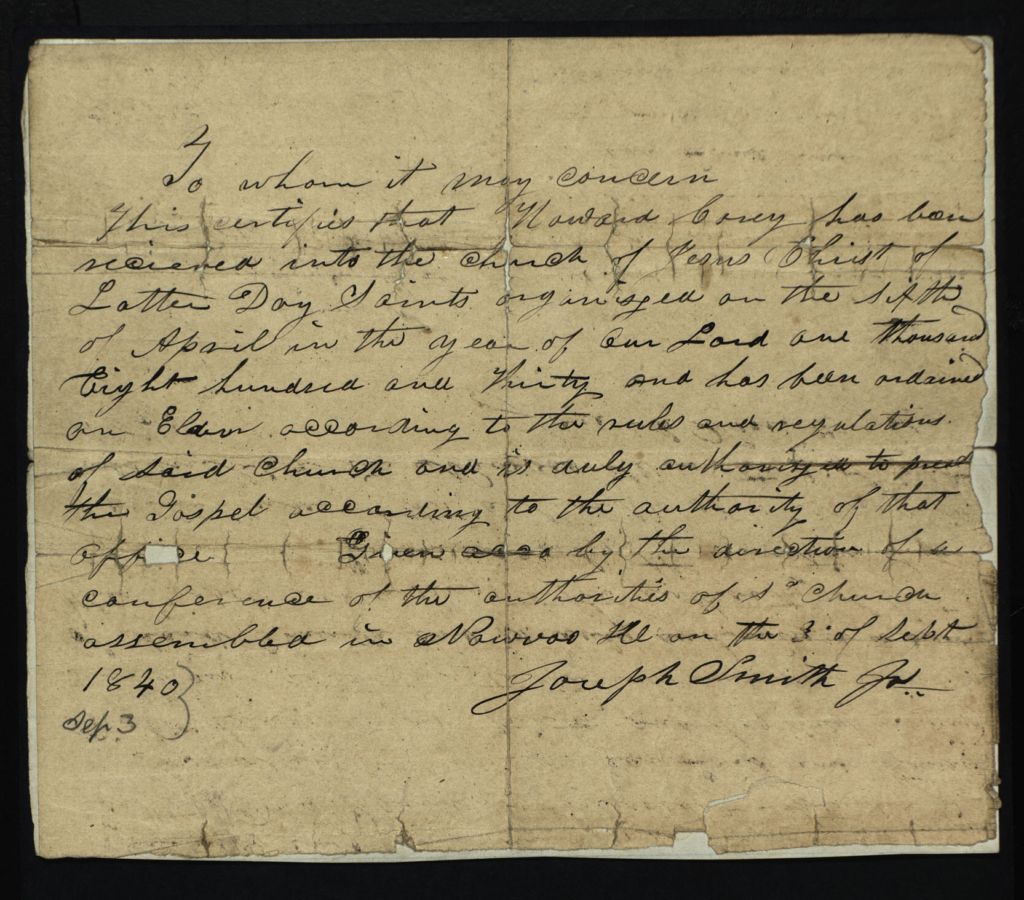 To whom it may concern
This certifies that Howard Corey has been
recieved into the church of Jesus Christ of
Latter Day Saints organized on the sixth
of April in the year of Our Lord one thousand
Eight hundred and thirty and has been ordained
an Elder according to the rules and regulations
of said church and is duly authorized to preach
the Gospel according to the authority of that
office Given acco by the direction of a
conference of the authorities of sd church
assembled in Nawvoo Ill on the 3d of Sebt
1840
Joseph Smith Jr
Sep 3